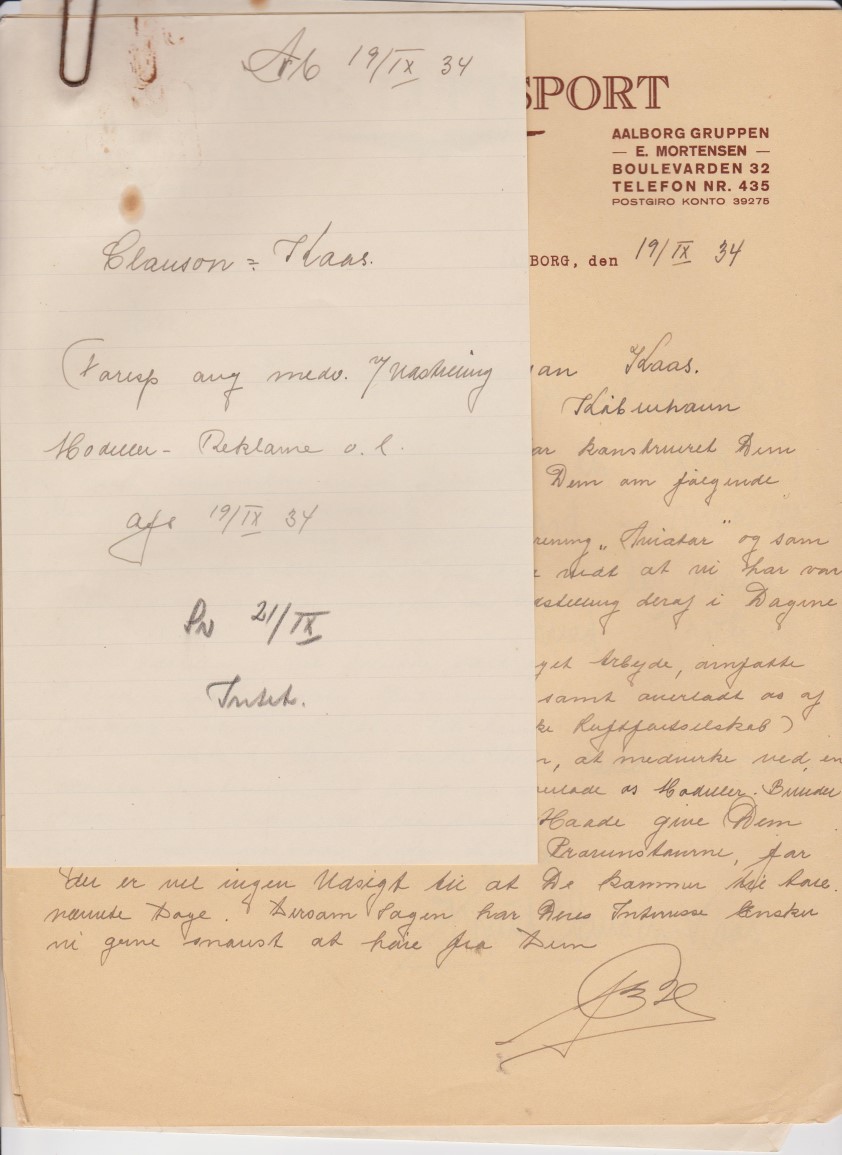 Arb 19/IX 34
Clauson = Kaas.
Foresp ang medv. v/ Udstilling
Modeller - Reklame o. l.
afs 19/IX 34
Sv 21/IX
Intet.
SPORT
AALBORG GRUPPEN
— E. MORTENSEN —
BOULEVARDEN 32
TELEFON NR. 435
POSTGIRO KONTO 39275
BORG, den 19/IX 34
Kaas.
København
ar konstrueret Dem
Dem om følgende
rening „Aviator" og som
vidt at vi har vor
dstilling deraf i Dagene
get Arbejde, omfatte
samt overladt os af
ke Luftfartselskab)
, at medvirke ved en
os Modeller. Billeder
Maade give Dem
Provinsturne, for
der er vel ingen Udsigt til at De kommer her til
nævnte Dage. Dersom Sagen har Deres Interesse ønsker
vi gerne snarest at høre fra Dem